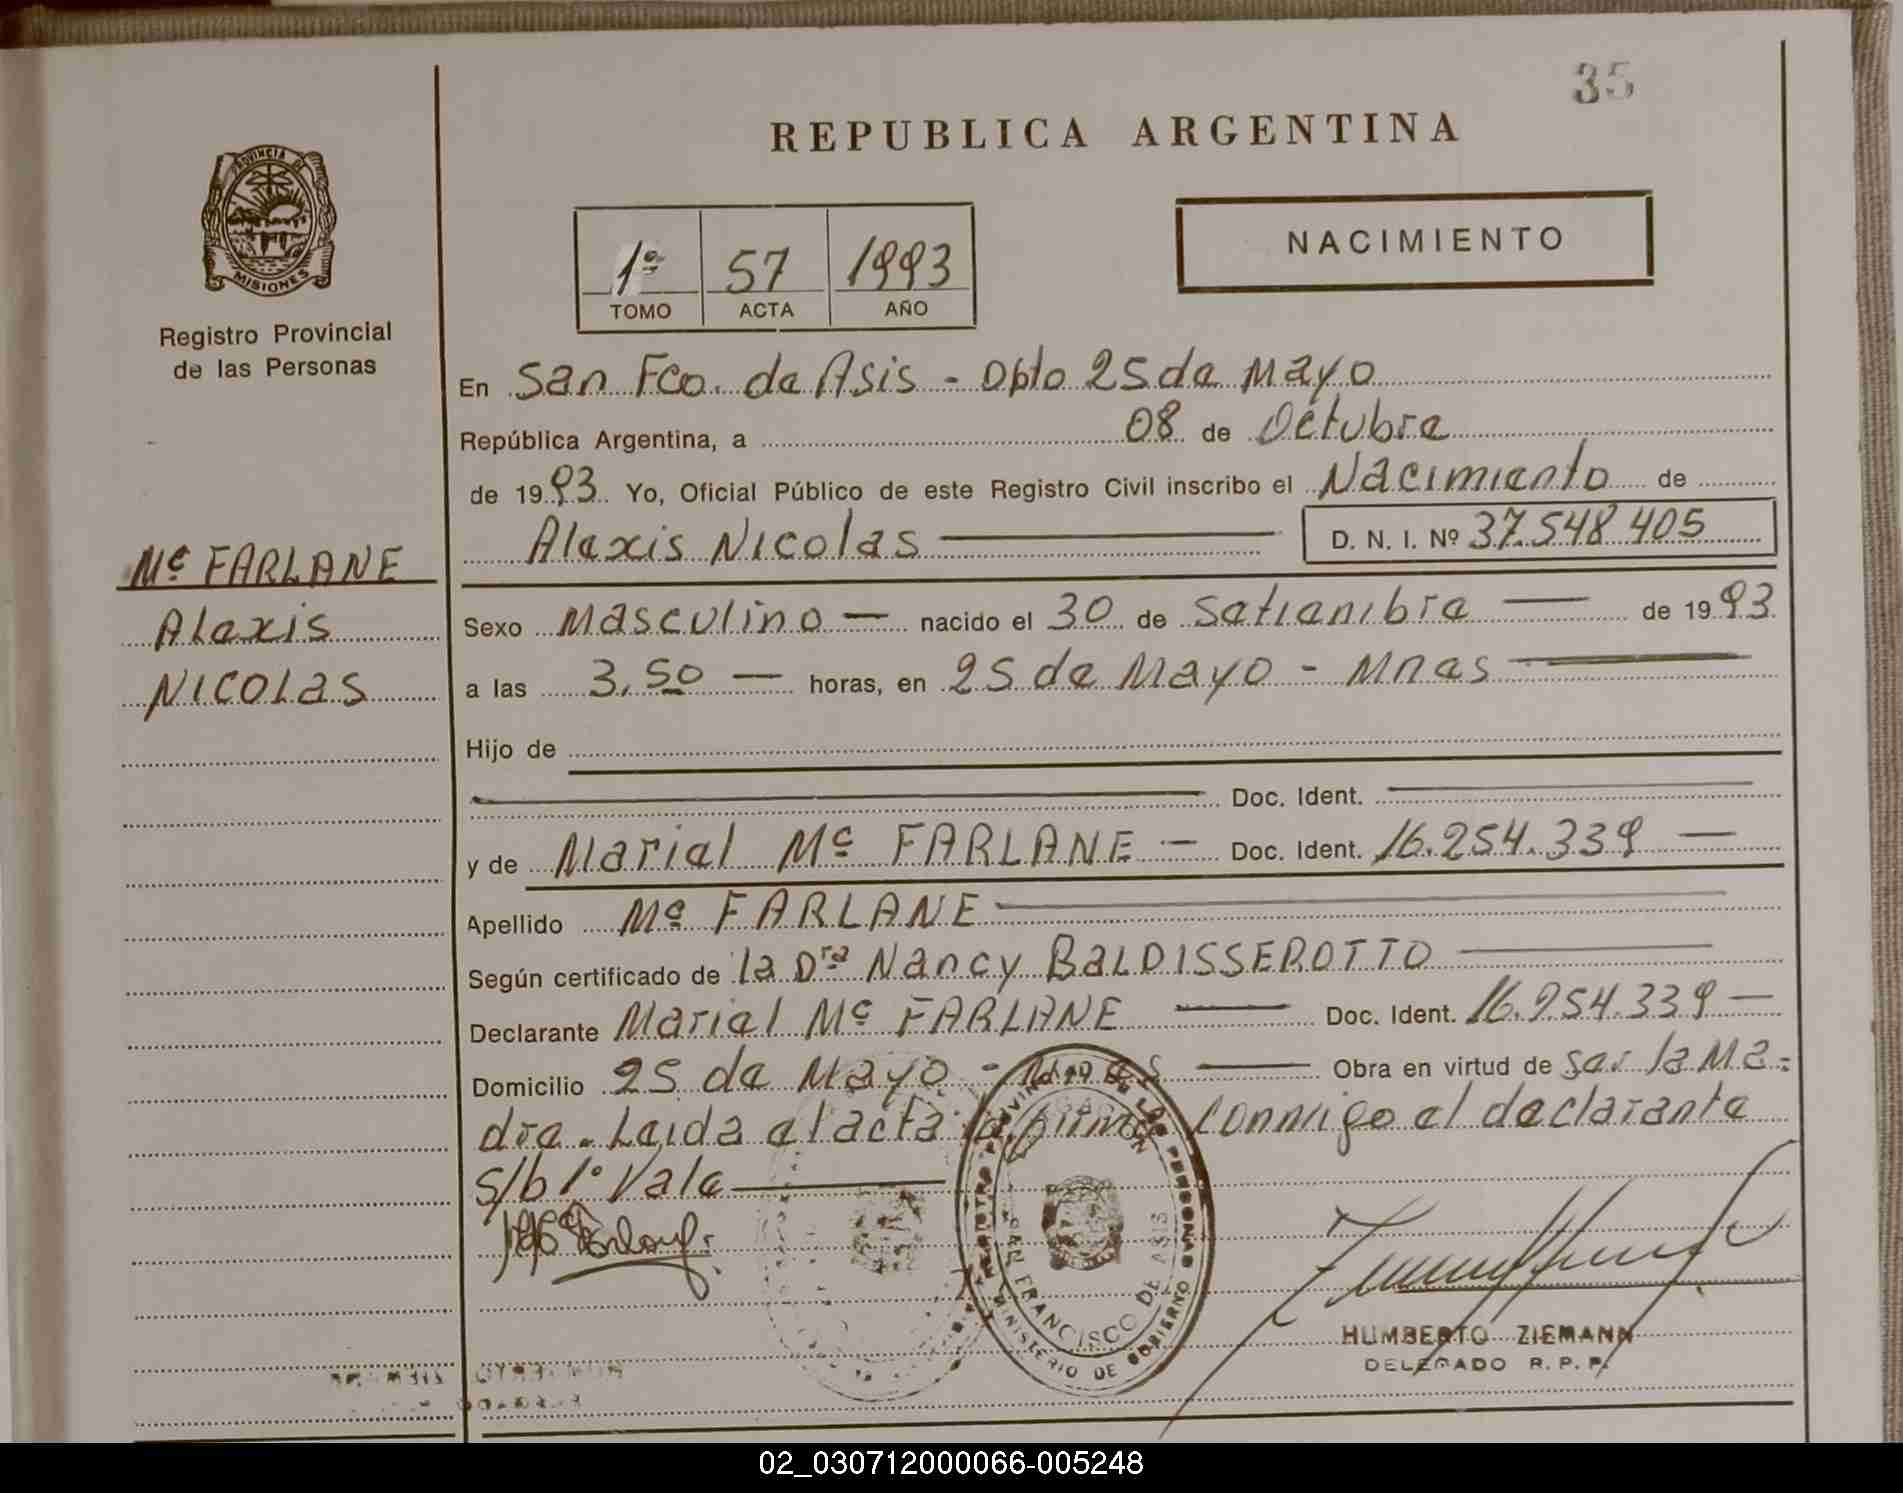 35
REPUBLICA ARGENTINA
PROVINCIA DE
MISIONES
Registro Provincial
de las Personas
1º 57 1993
TOMO ACTA AÑO
NACIMIENTO
En San Fco. de Asis - Dpto 25 de Mayo
República Argentina, a 08 de Octubre
de 1993 Yo, Oficial Público de este Registro Civil inscribo el Nacimiento de
Alexis Nicolas D. N. I. Nº 37.548.405
Mc FARLANE
Alexis
NICOLAS
Sexo Masculino — nacido el 30 de Setiembre — de 1993.
a las 3,50 — horas, en 25 de Mayo - Mnes
Hijo de
Doc. Ident.
y de Mariel Mc FARLANE — Doc. Ident. 16.254.339 —
Apellido Mc FARLANE
Según certificado de la Dra Nancy BALDISSEROTTO
Declarante Mariel Mc FARLANE — Doc. Ident. 16.254.339 —
Domicilio 25 de Mayo - Mnes — Obra en virtud de ser la Ma-
dre. Leida el acta la firma conmigo el declarante
s/b 1º Vale
REGISTRO PROVINCIAL DE LAS PERSONAS
SAN FRANCISCO DE ASIS
MINISTERIO DE GOBIERNO
HUMBERTO ZIEMANN
DELEGADO R. P. P.
02_030712000066-005248